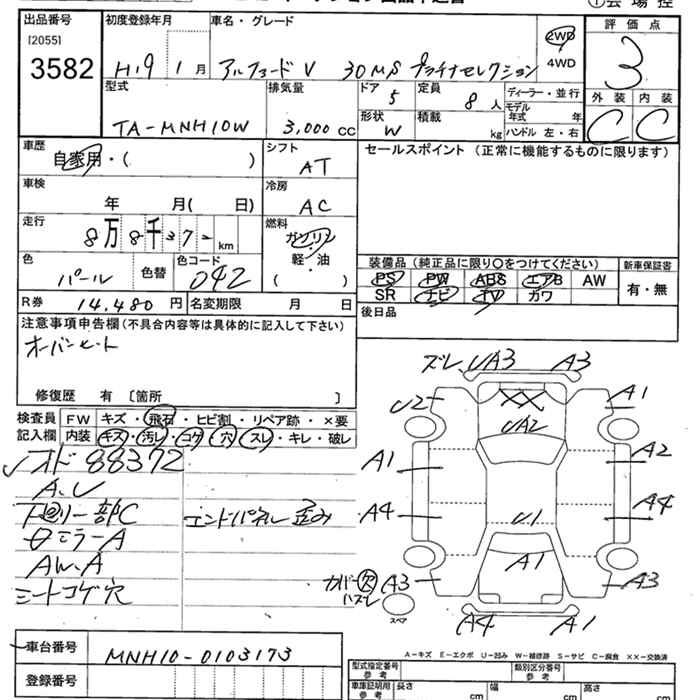 ①会場控
出品番号
[2055]
3582
初度登録年月
H19 1月
車名・グレード
アルファードV 30MS プラチナセレクション
2WD
4WD
評価点
3
外装 内装
C C
型式
TA-MNH10W
排気量
3,000 cc
ドア
5
定員
8人
形状
W
積載
kg
ディーラー・並行
モデル年式 年
ハンドル 左・右
車歴
自家用・( )
シフト
AT
セールスポイント (正常に機能するものに限ります)
車検
年 月( 日)
冷房
AC
走行
8万8千37- km
燃料
ガソリン・
軽・油
( )
色
パール
色替
色コード
042
装備品 (純正品に限り○をつけてください)
新車保証書
PS PW ABS エアB AW
有・無
SR ナビ TV カワ
R券 14,480円
名変期限 月 日
後日品
注意事項申告欄 (不具合内容等は具体的に記入して下さい)
オーバーヒート
修復歴 有 〔箇所 〕
検査員
記入欄
FW キズ・飛石・ヒビ割・リペア跡・×要
内装 キズ・汚レ・コゲ・穴・スレ・キレ・破レ
オド 88372
A.U
下廻リ一部C
ミラーA
AW.A
シートコゲ穴
エンドパネル歪み
ズレ UA3 A3
U2 A1
UA2
A1 A2
A4 A4
U1
A1
カバー穴 A3 A3
ハズレ
スペア
A4 A1
車台番号 MNH10-0103173
登録番号
A-キズ E-エクボ U-凹み W-補修跡 S-サビ C-腐食 ××-交換済
型式指定番号
参考
類別区分番号
参考
車庫証明用
参考
長さ cm
幅 cm
高さ cm